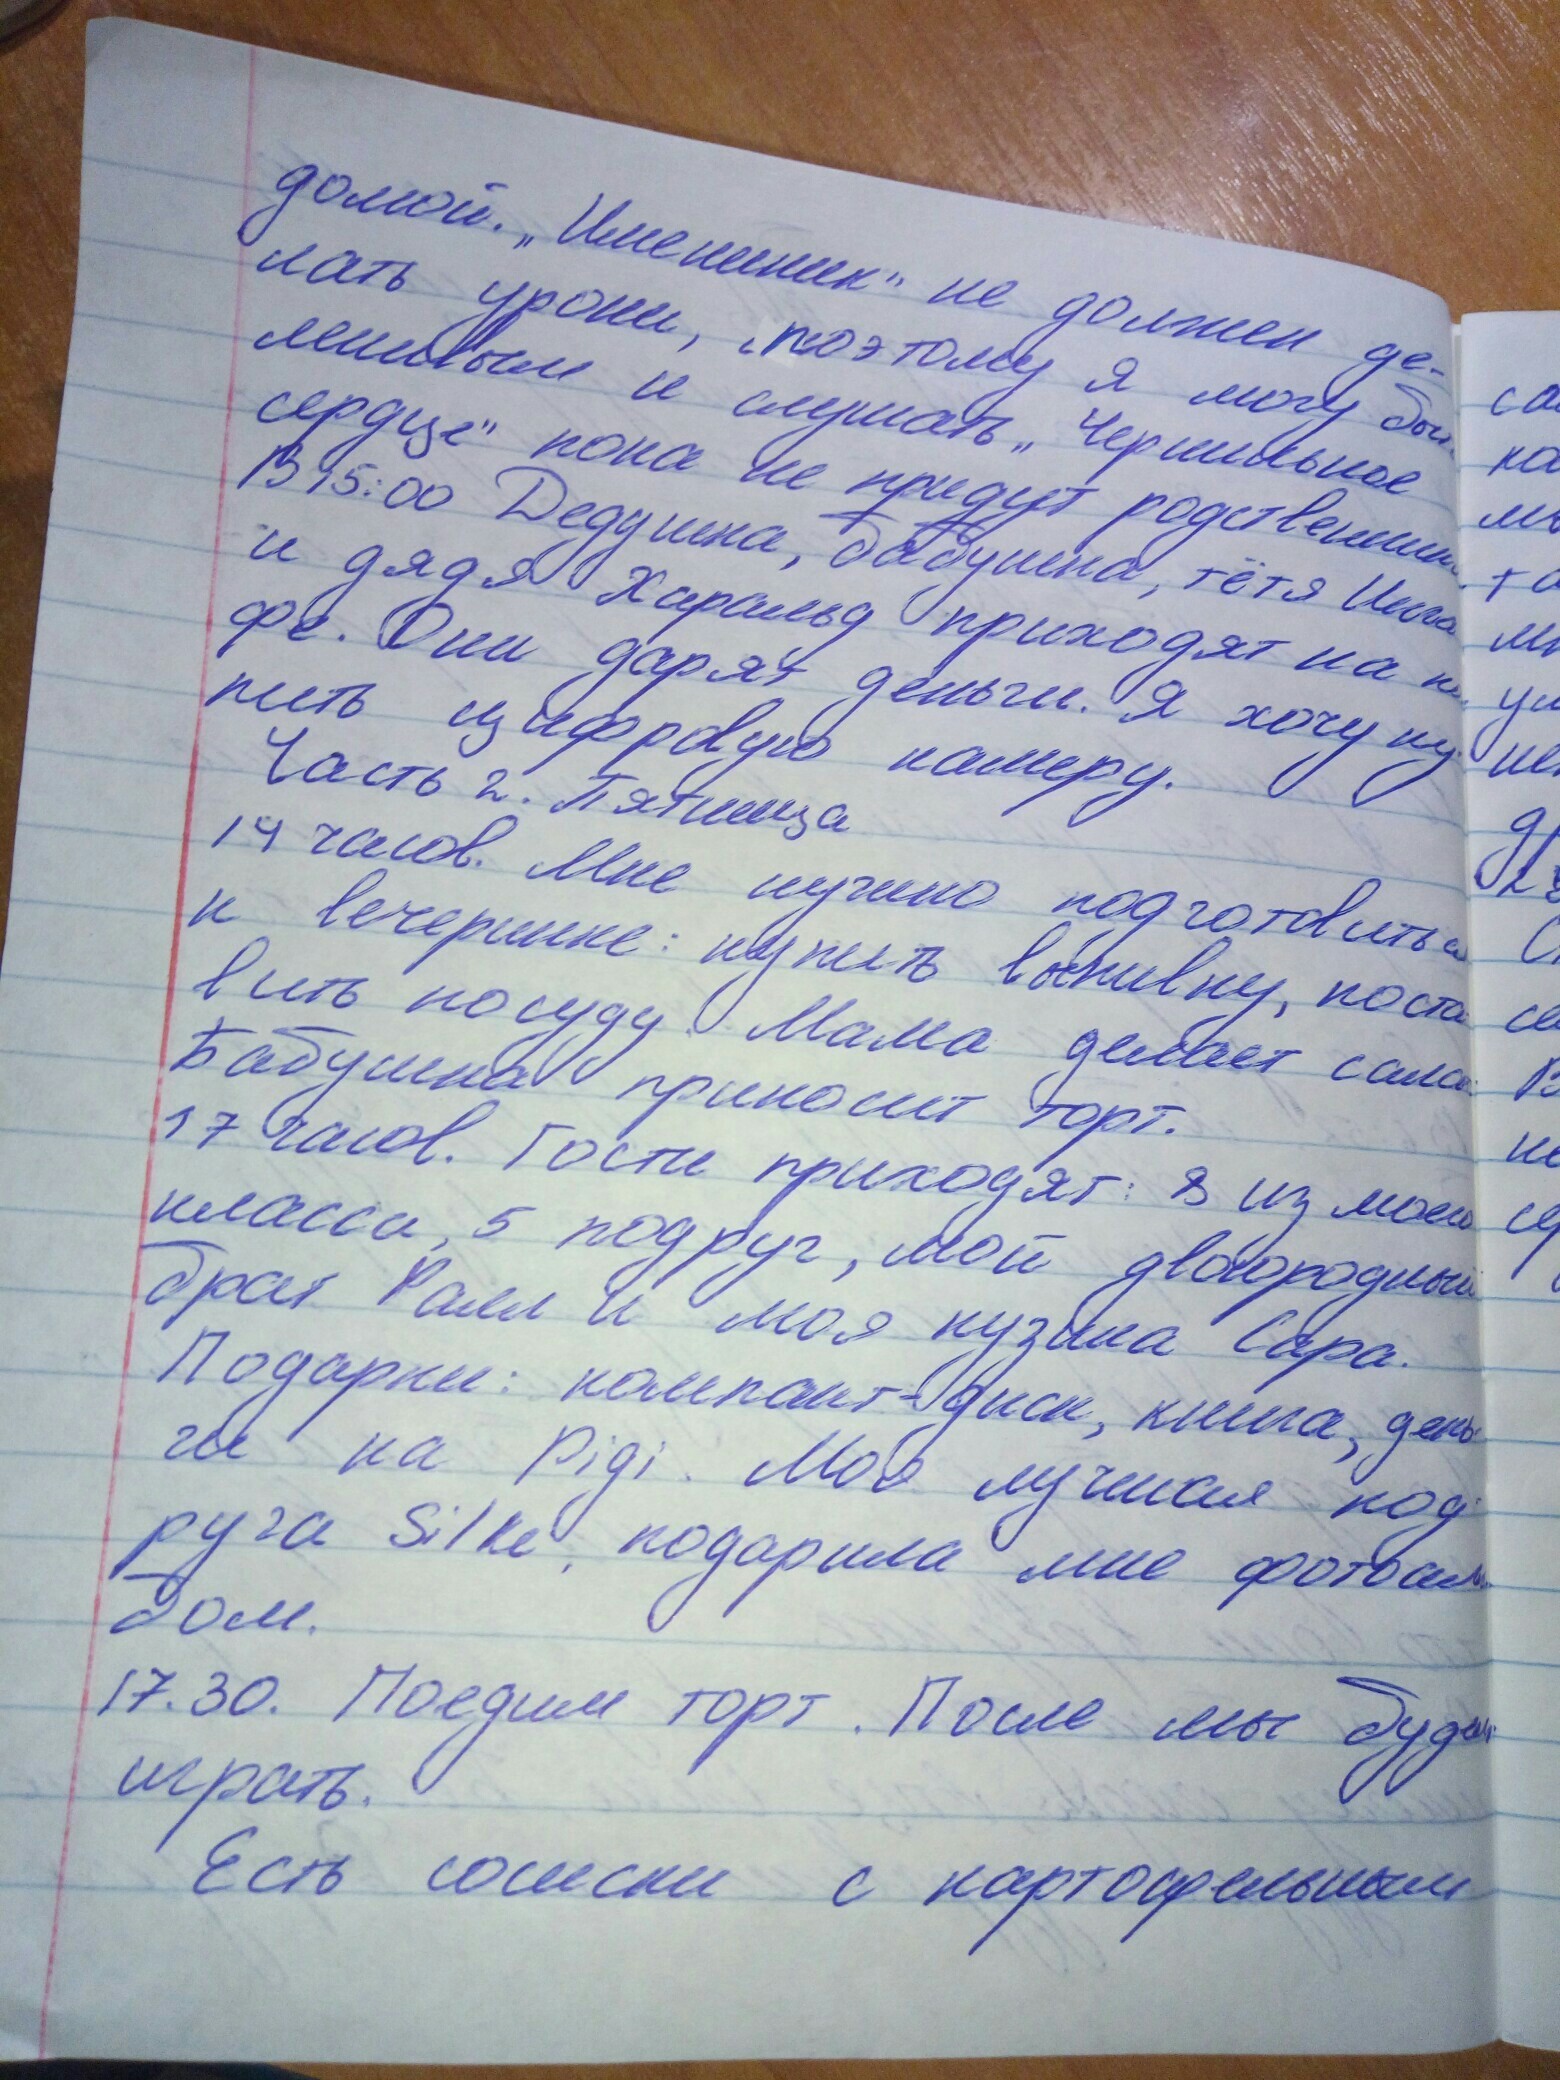 домой. „Именинник" не должен де-
лать уроки, поэтому я могу быт
ленивым и слушать „Чернильное
сердце" пока не придут родственник
В 15:00 Дедушка, бабушка, тётя Инга
и дядя Харальд приходят на ко
фе. Они дарят деньги. Я хочу ку
пить цифровую камеру.
Часть 2. Пятница
14 часов. Мне нужно подготовиться
к вечеринке: купить выпивку, поста
вить посуду. Мама делает сала
Бабушка приносит торт.
17 часов. Гости приходят: 8 из моего
класса, 5 подруг, мой двоюродный
брат Ралл и моя кузина Сара.
Подарки: компакт-диск, книга, день
ги на Pigi. Моя лучшая под
руга Silke, подарила мне фотоаль
бом.
17.30. Поедим торт. После мы будем
играть.
Есть сосиски с картофельным